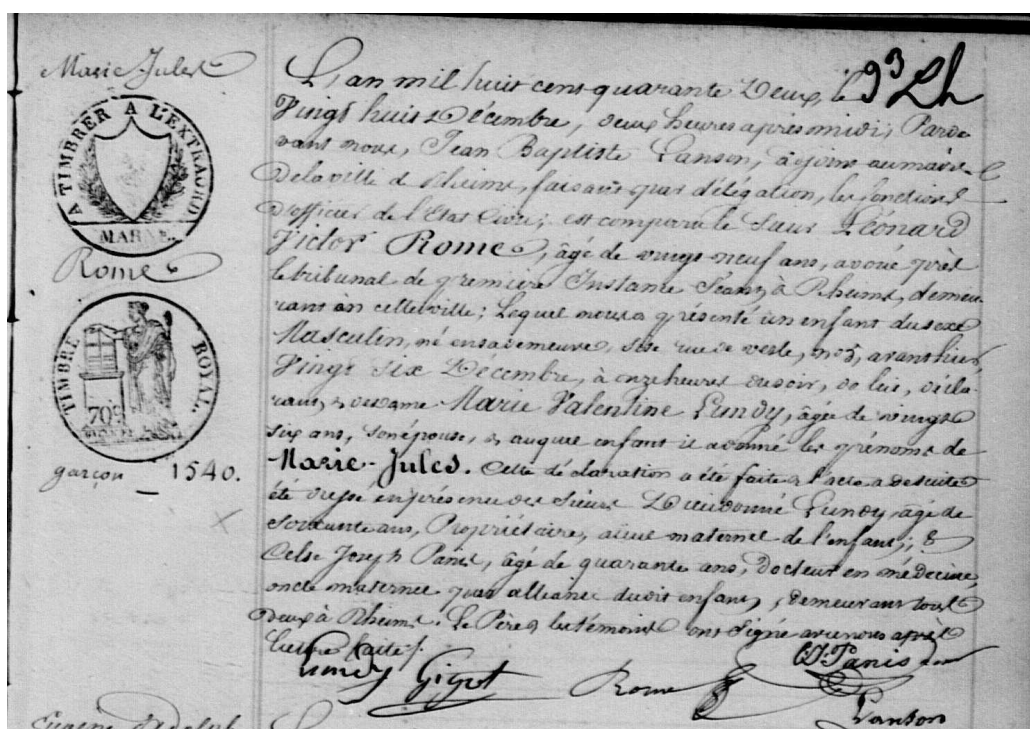 Marie Jules
A TIMBRER A L'EXTRAORD
MARNE.
Rome
TIMBRE ROYAL.
garçon _ 1540.
L'an mil huit cent quarante Deux, le
Vingt huit Décembre, deux heures après midi, Parde
vant nous, Jean Baptiste Lanson, adjoint au maire
De la ville de Rheims, faisant par délégation, les fonctions
D'officier de l'Etat Civil; est comparu le Sieur Léonard
Victor Rome, âgé de vingt neuf ans, avoué près
le tribunal de première Instance Séant à Rheims, demeu
rant en cette ville; Lequel nous a présenté un enfant du sexe
Masculin, né en sa demeure, sise rue de vesle, avant hier,
Vingt six Décembre, à onze heures du soir, de lui, décla
rant, & de dame Marie Valentine Lundy, âgée de vingt
six ans, son épouse, & auquel enfant il a donné les prénoms de
Marie-Jules. Cette déclaration a été faite & l'acte a de suite
été dressé en présence des Sieurs Dieudonné Lundy, âgé de
soixante ans, Propriétaire, aïeul maternel de l'enfant; &
Celse Joseph Panis, âgé de quarante ans, Docteur en médecine,
oncle maternel par alliance dudit enfant, demeurant tous
deux à Rheims. Le Père & les témoins ont signé avec nous après
Lecture faite.
Lundy Gigot Rome Panis
Lanson
Eugene Adolph